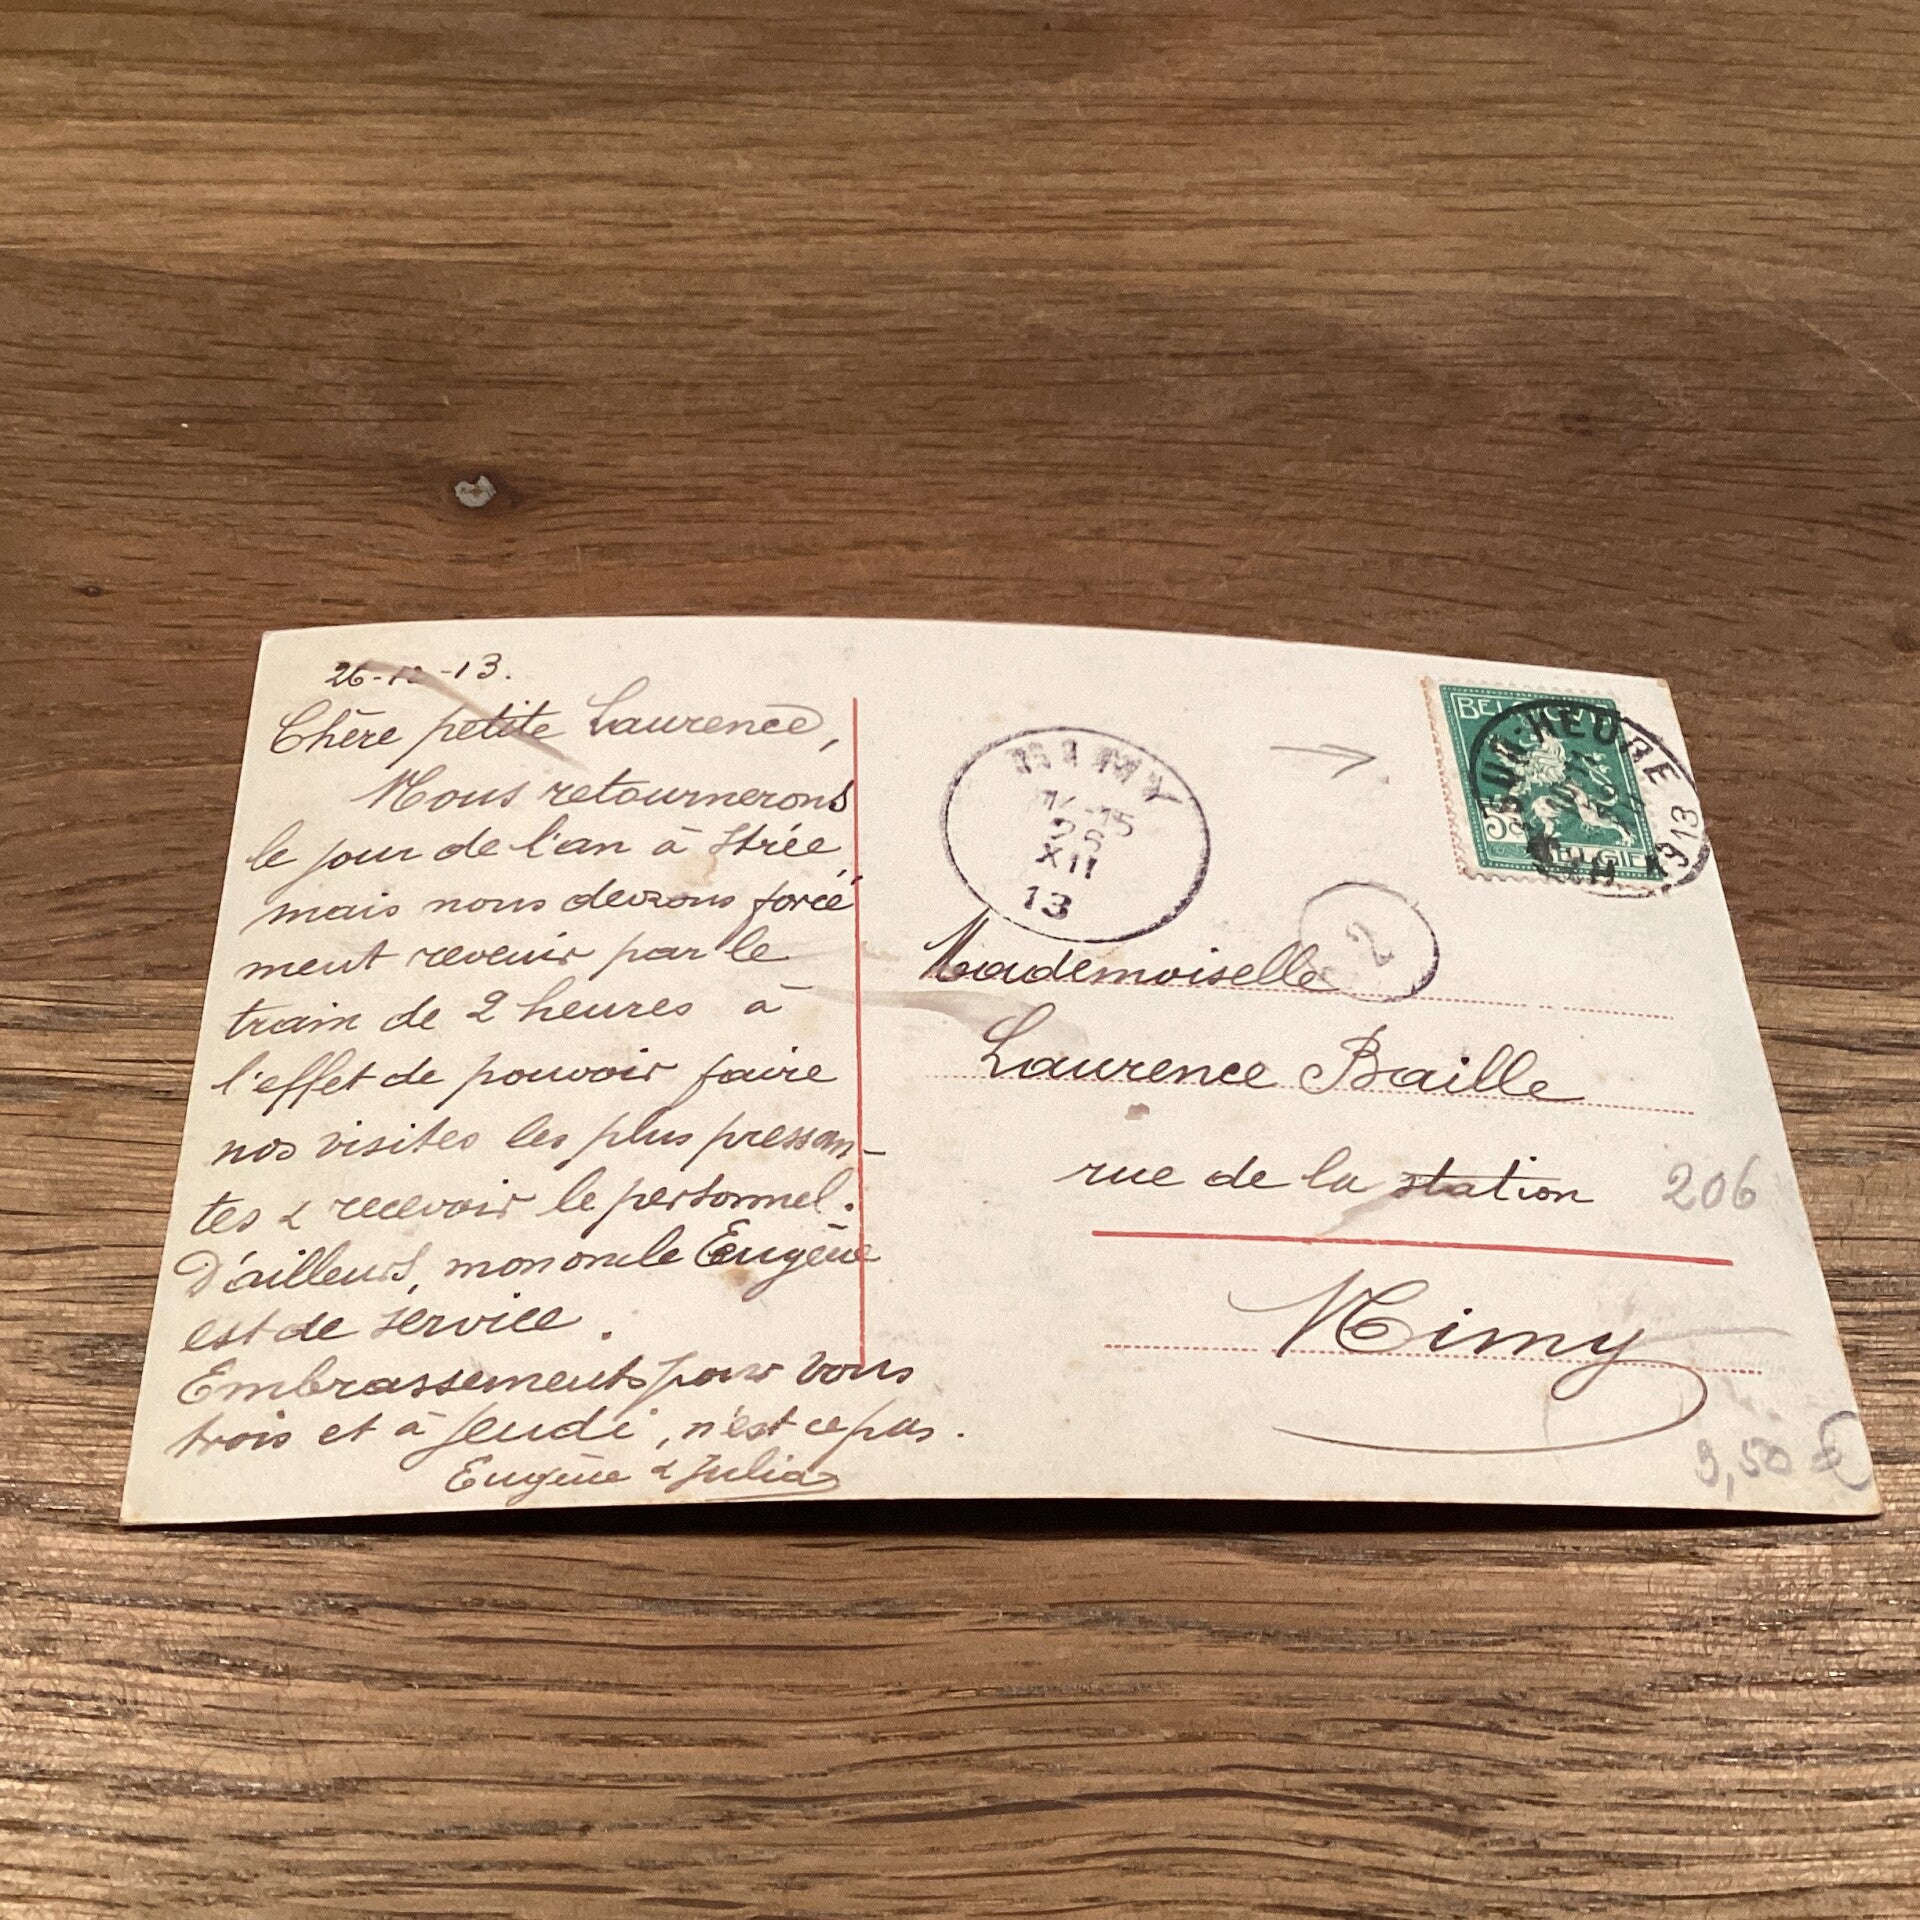 26-12-13.
Chère petite Laurence,
Nous retournerons
le jour de l'an à Strée,
mais nous devrons forcé
ment revenir par le
train de 2 heures à
l'effet de pouvoir faire
nos visites les plus pressan-
tes & recevoir le personnel.
D'ailleurs, mon oncle Eugène
est de service.
Embrassements pour vous
trois et à jeudi, n'est ce pas.
Eugène & Julia
NIMY
14-15
26
XII
13
2
BELGIQUE
5c
BELGIE
SUR-HEURE
1913
Mademoiselle
Laurence Baille
rue de la station
206
Nimy
9,50 €